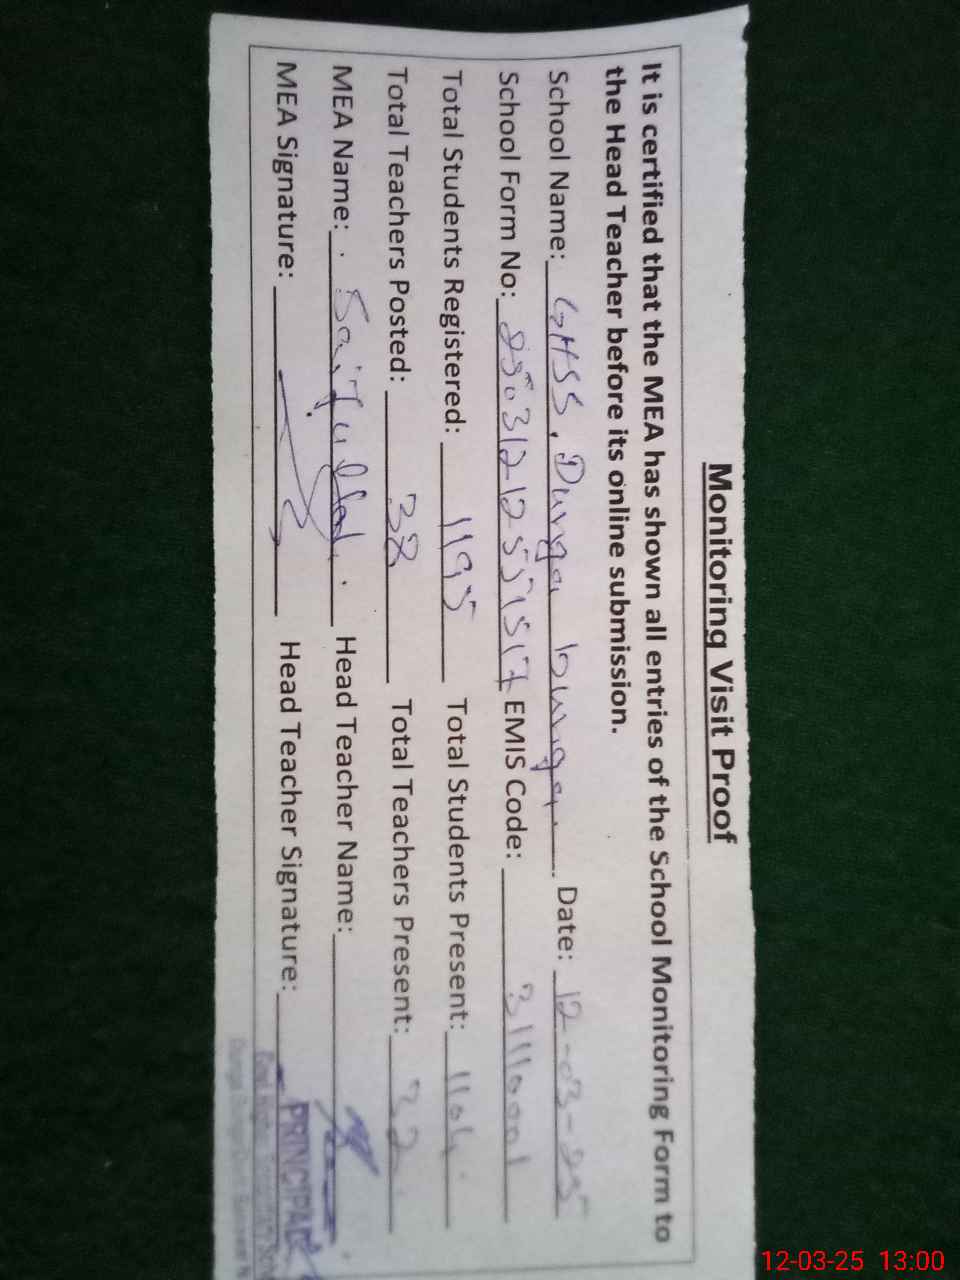 Monitoring Visit Proof
It is certified that the MEA has shown all entries of the School Monitoring Form to
the Head Teacher before its online submission.
School Name: GHSS, Dunga bunga. Date: 12-03-25
School Form No: EMIS Code: 31110001
Total Students Registered: 1195 Total Students Present: 1104
Total Teachers Posted: 38 Total Teachers Present: 32
MEA Name: Head Teacher Name:
MEA Signature: Head Teacher Signature:
PRINCIPAL
12-03-25 13:00